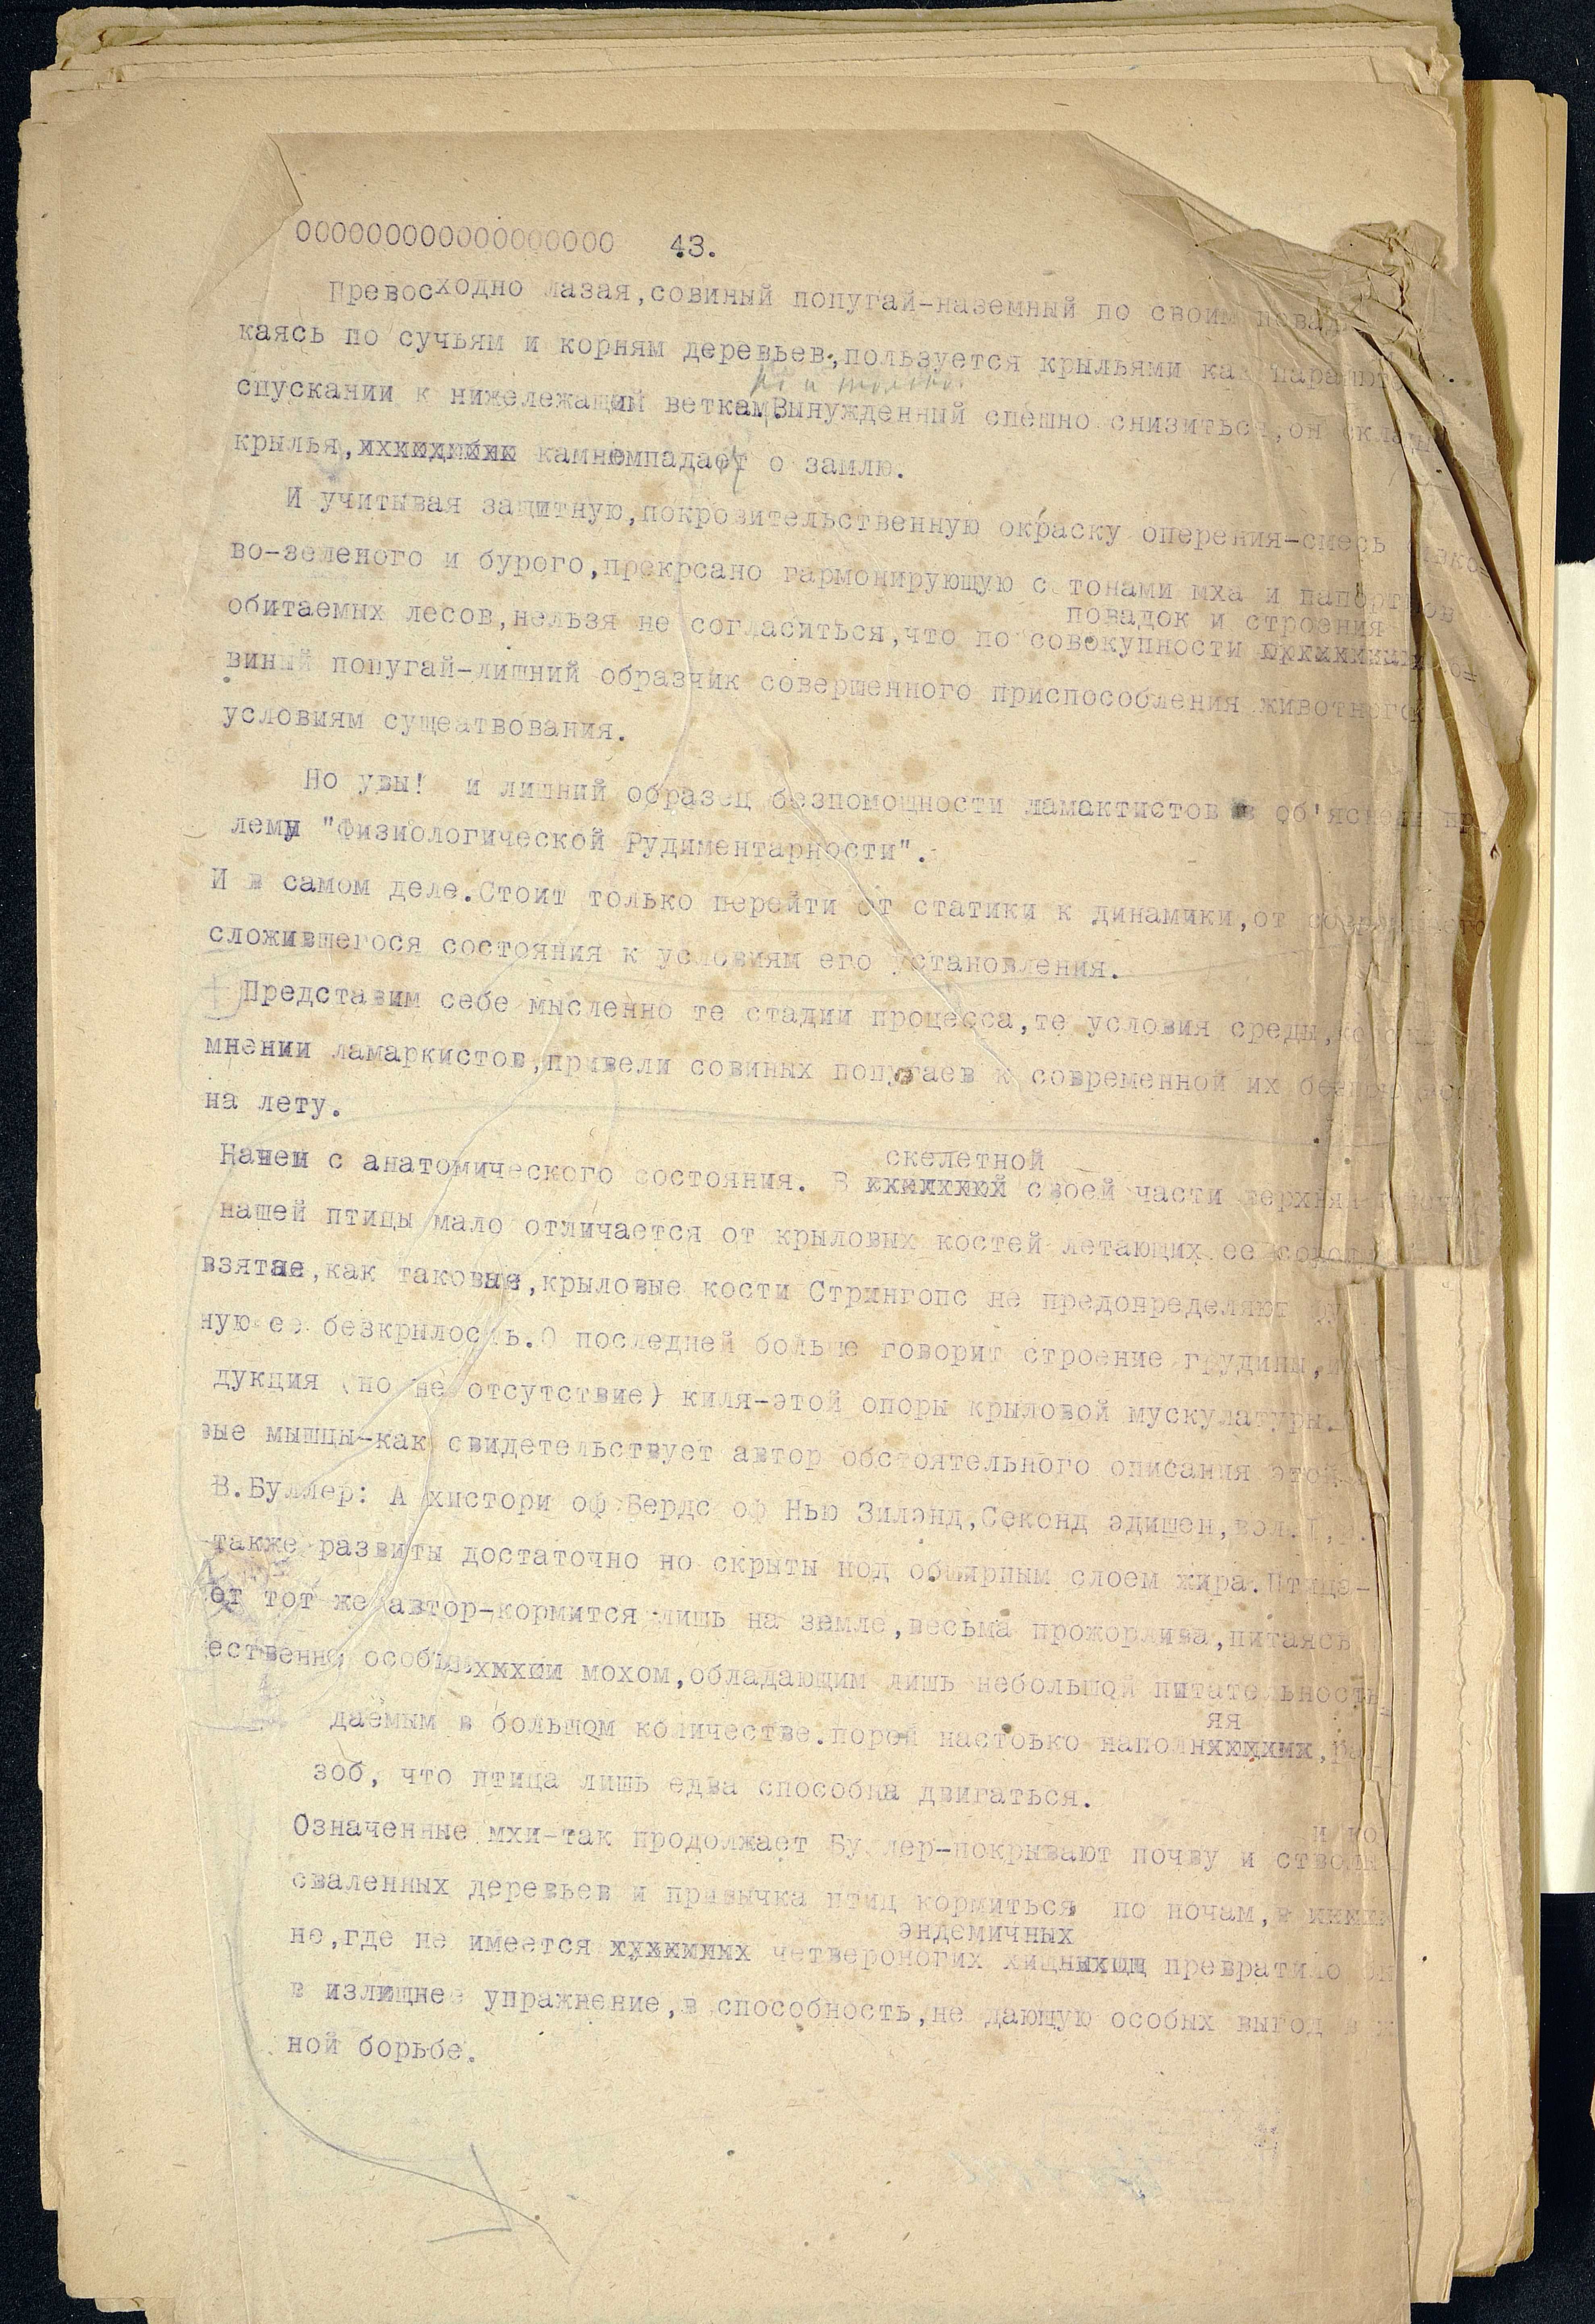 0000000000000000000 43.
Превосходно лазая,совиный попугай-наземный по своим
каясь по сучьям и корням деревьев,пользуется крыльями как парашют
но и только.
спускании к нижележащим веткам Вынужденный спешно снизиться,он
крылья, камнем падает о замлю.
И учитывая защитную,покровительственную окраску оперения-смесь
во-зеленого и бурого,прекрсано гармонирующую с тонами мха и папортнов
повадок и строения
обитаемых лесов,нельзя не согласиться,что по совокупности
виный попугай-лишний образчик совершенного приспособления животного
условиям сущеатвования.
Но увы! и лишний образец безпомощности ламактистов в об'яснени
лемы "Физиологической Рудиментарности".
И в самом деле.Стоит только перейти от статики к динамики,от
сложившегося состояния к условиям его установления.
Представим себе мысленно те стадии процесса,те условия среды,
мнении ламаркистов,привели совиных попугаев к современной их
на лету.
скелетной
Начем с анатомического состояния. В своей части верхняя
нашей птицы мало отличается от крыловых костей летающих ее
взятые,как таковые,крыловые кости Стрингопс не предопределяют
ную ее безкрылость.О последней больше говорит строение грудины,
дукция (но не отсутствие) киля-этой опоры крыловой мускулатуры.
вые мышцы-как свидетельствует автор обстоятельного описания этой
В.Буллер: А хистори оф Бердс оф Нью Зилэнд,Секонд эдишен,вол.I,
также развиты достаточно но скрыты под обширным слоем жира.Птица-
ет тот же автор-кормится лишь на земле,весьма прожорлива,питаясь
ественно особым мохом,обладающим лишь небольшой питательность
яя
даемым в большом количестве.порой настоько наполн
зоб, что птица лишь едва способна двигаться.
и ко
Означенные мхи-так продолжает Буллер-покрывают почву и стволы
сваленных деревьев и привычка птиц кормиться по ночам,в
эндемичных
не,где не имеется четвероногих хищных превратило
в излищнее упражнение,в способность,не дающую особых выгод в
ной борьбе.